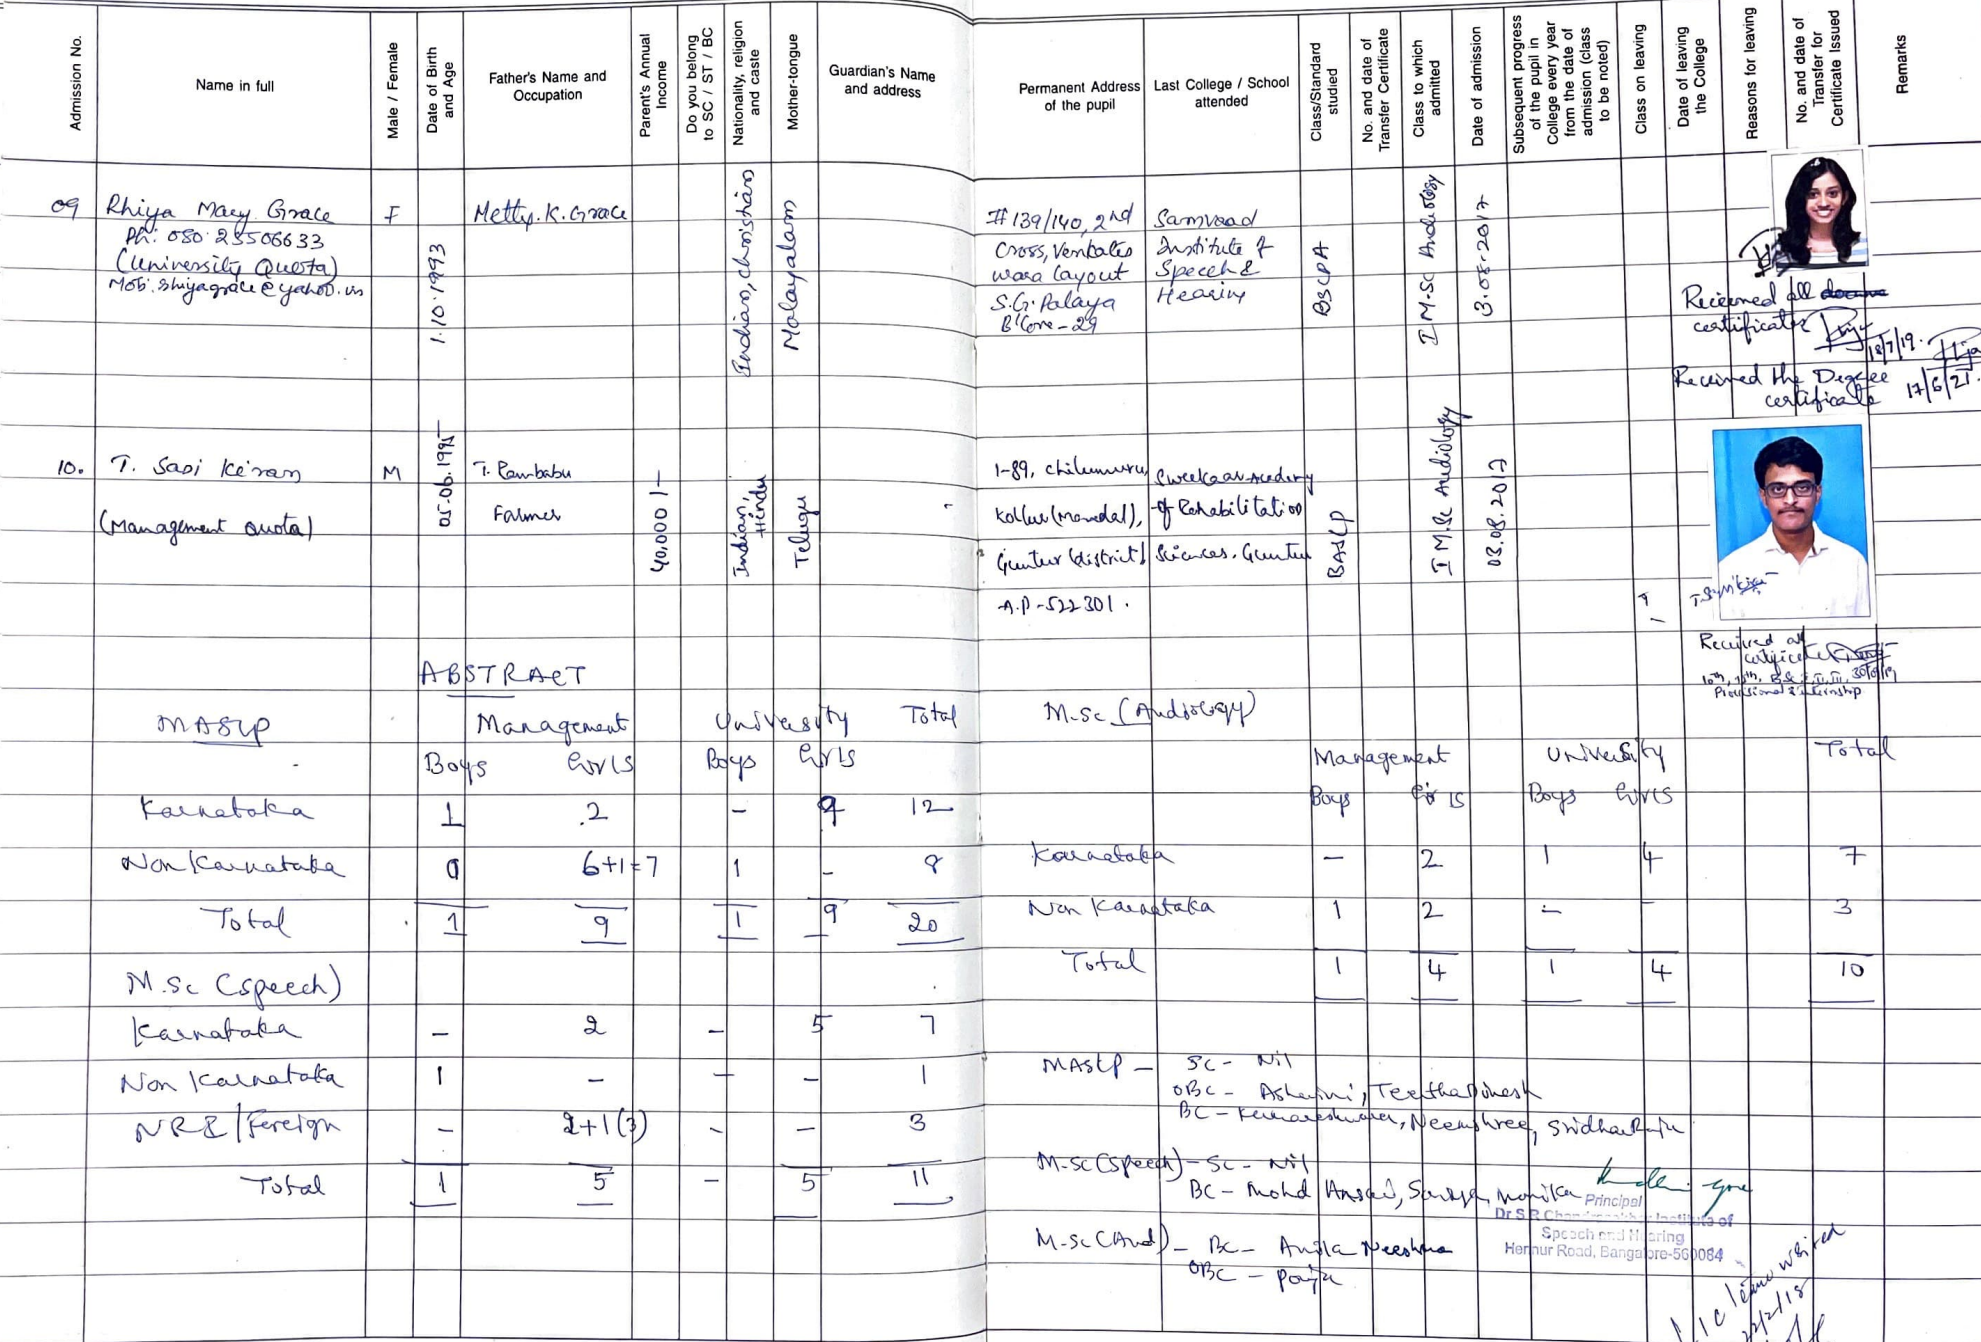 Admission No.
Name in full
Male / Female
Date of Birth
and Age
Father's Name and
Occupation
Parent's Annual
Income
Do you belong
to SC / ST / BC
Nationality, religion
and caste
Mother-tongue
Guardian's Name
and address
Permanent Address
of the pupil
Last College / School
attended
Class/Standard
studied
No. and date of
Transfer Certificate
Class to which
admitted
Date of admission
Subsequent progress
of the pupil in
College every year
from the date of
admission (class
to be noted)
Class on leaving
Date of leaving
the College
Reasons for leaving
No. and date of
Transfer for
Certificate Issued
Remarks
09 Rhiya Mary Grace F Metty. K. Grace
Ph: 080 23506633
(University Quota)
1.10.1993
Indian, christian
Malayalam
#139/140, 2nd
Cross, Venkates
wara layout
S.G. Palaya
B'lore - 29
Samvaad
Institute of
Speech &
Hearing
I M.Sc Audiology
3.08.2017
Received all
certificates
18/7/19.
Received the Degree
certificate
17/6/21.
10. T. Sasi Kiran M T. Rambabu
(Management Quota)
Farmer
05.06.1995
40,000/-
Indian,
Hindu
Telugu
1-89, chilumuru,
Kollur (Mandal),
Guntur (district)
A.P - 522301.
Sweekaar Academy
of Rehabilitation
Sciences. Guntur
BASLP
I M.Sc Audiology
03.08.2017
Received all
certificate
10th, 12th,
Provisional & Internship
ABSTRACT
MASLP Management University Total
Boys Girls Boys Girls
Karnataka 1 2 - 9 12
Non Karnataka 0 6+1=7 1 - 8
Total 1 9 1 9 20
M.Sc (speech)
Karnataka - 2 - 5 7
Non Karnataka 1 - - - 1
NRI/Foreign - 2+1(3) - - 3
Total 1 5 - 5 11
M.Sc (Audiology)
Management University Total
Boys Girls Boys Girls
Karnataka - 2 1 4 7
Non Karnataka 1 2 - - 3
Total 1 4 1 4 10
MASLP - SC - Nil
OBC - Ashwini, Teertha Dinesh
BC - Kumareshwaran, Neemshree, Sridhar Raju
M.Sc (speech) - SC - Nil
BC - Mohd Ansari, Monika
Principal
Dr S.R. Chandrasekhar Institute of
Speech and Hearing
Hennur Road, Bangalore-560084
M.Sc (Aud) - BC - Anila Neeshma
OBC - Pooja